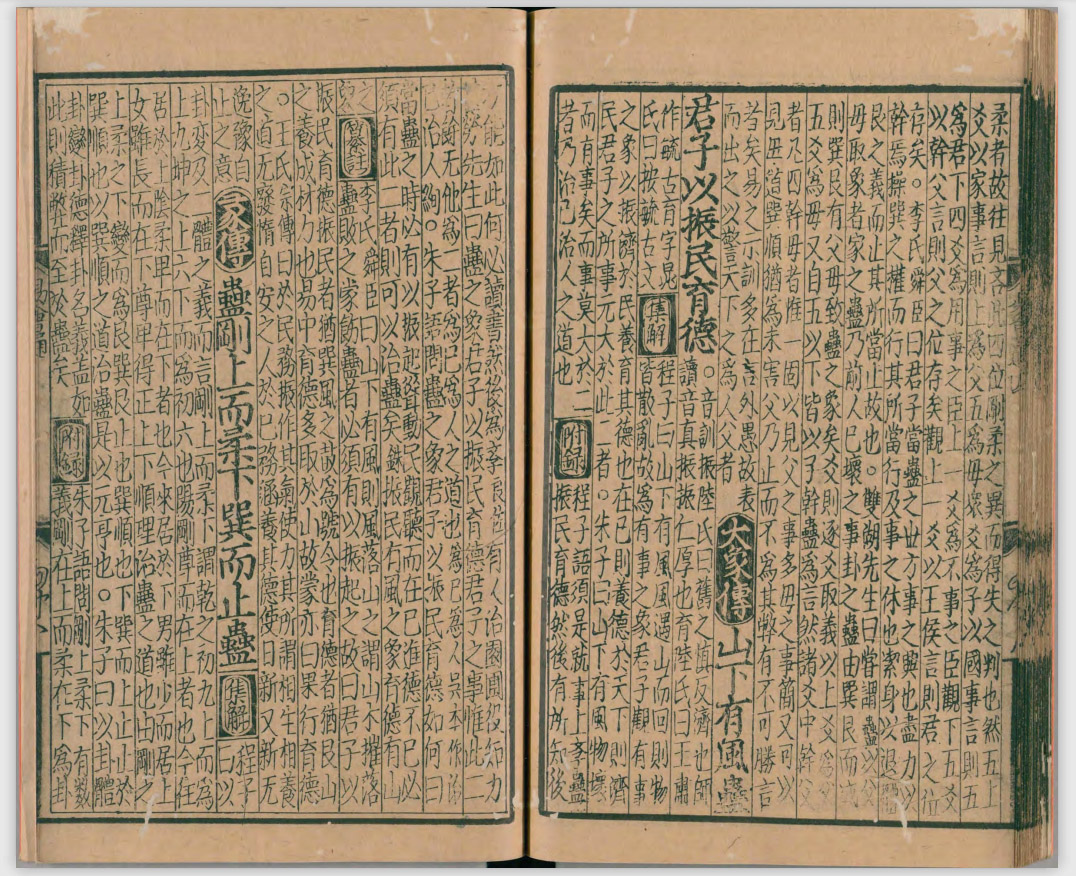 柔者故往見吝此四位剛柔之異而得失之判也然五上
爻以家事言則上為父五為母衆爻為子以國事言則五
為君下四爻為用事之臣上一爻為不事之臣觀下五爻
以幹父言則父之位存矣觀上一爻以不以王侯言則君之位
存矣。李氏舜臣曰君子當蠱之世方事之興也盡力以
幹焉操巽之權而行其所當行及事之休也潔身以退體
艮之義而止其所當止故也。雙湖先生曰嘗謂蠱以父
母取象者家之蠱乃前人已壞之事卦之蠱由巽艮而成
則巽艮有父母致蠱之象矣爻則逐爻取義以上爻為父
五爻為母又自五以下皆以子幹蠱為言然諸爻中幹父
者凡四幹母者惟一固以見父之事多母之事簡又可以
見母陰巽順猶為未害父乃止而不為其弊有不可勝言
者矣易之示訓多在言外愚故表
而出之以警天下之為人父者
大象傳 山下有風蠱
君子以振民育德
。音訓振陸氏曰舊之慎反濟也師
讀音真振仁厚也育陸氏曰王肅
作毓古育字晁
氏曰按毓古文
集解
程子曰山下有風風遇山而回則物
皆散亂故為有事之象君子觀有事
之象以振濟於民養育其德也在已則養德於天下則濟
民君子之所事无大於此二者。朱子曰山下有風物壞
而有事矣而事莫大於二
者乃治己治人之道也
附錄
程子語須是就事上學蠱
振民育德然後有所知後
方能如此何必讀書然後為學良佐有人治園圃役知力
甚勞先生曰蠱之象君子以振民育德君子之事惟此二
者餘无他為二者為已為人之道也為已為人吳本作治
已治人絢。朱子語問蠱之象君子以振民育德如何曰
當蠱之時必有以振起聳動民觀聽而在已進德不已必
須有此二者則可以治蠱矣銖振民有風之象育德有山
之象
纂註
李氏舜臣曰山下有風則風落山之謂山木摧落
蠱敗之象飭蠱者必須有以振起之故曰君子以
振民育德振民者猶巽風之鼓為號令也育德者猶艮山
之養成材力也易中育德多取於山故蒙亦曰果行育德
。王氏宗傳曰於民務振作其氣使力其所謂相生相養
之道无廢惰自安之人於已務涵養其德使日新又新无
逸豫自
止之意
彖傳 蠱剛上而柔下巽而止蠱
集解
程子曰以
卦變及二體之義而言剛上而柔下謂乾之初九上而為
上九坤之上六下而為初六也陽剛尊而在上者也今往
居於上陰柔卑而在下者也今來居於下男雖少而居上
女雖長而在下尊卑得正上下順理治蠱之道也由剛之
上柔之下變而為艮巽艮止也巽順也下巽而上止止於
巽順也以巽順之道治蠱是以元亨也。朱子曰以卦體
卦變卦德釋卦名義蓋如
此則積弊而至於蠱矣
附錄
朱子語問剛上柔下有數
義剛在上而柔在下為卦